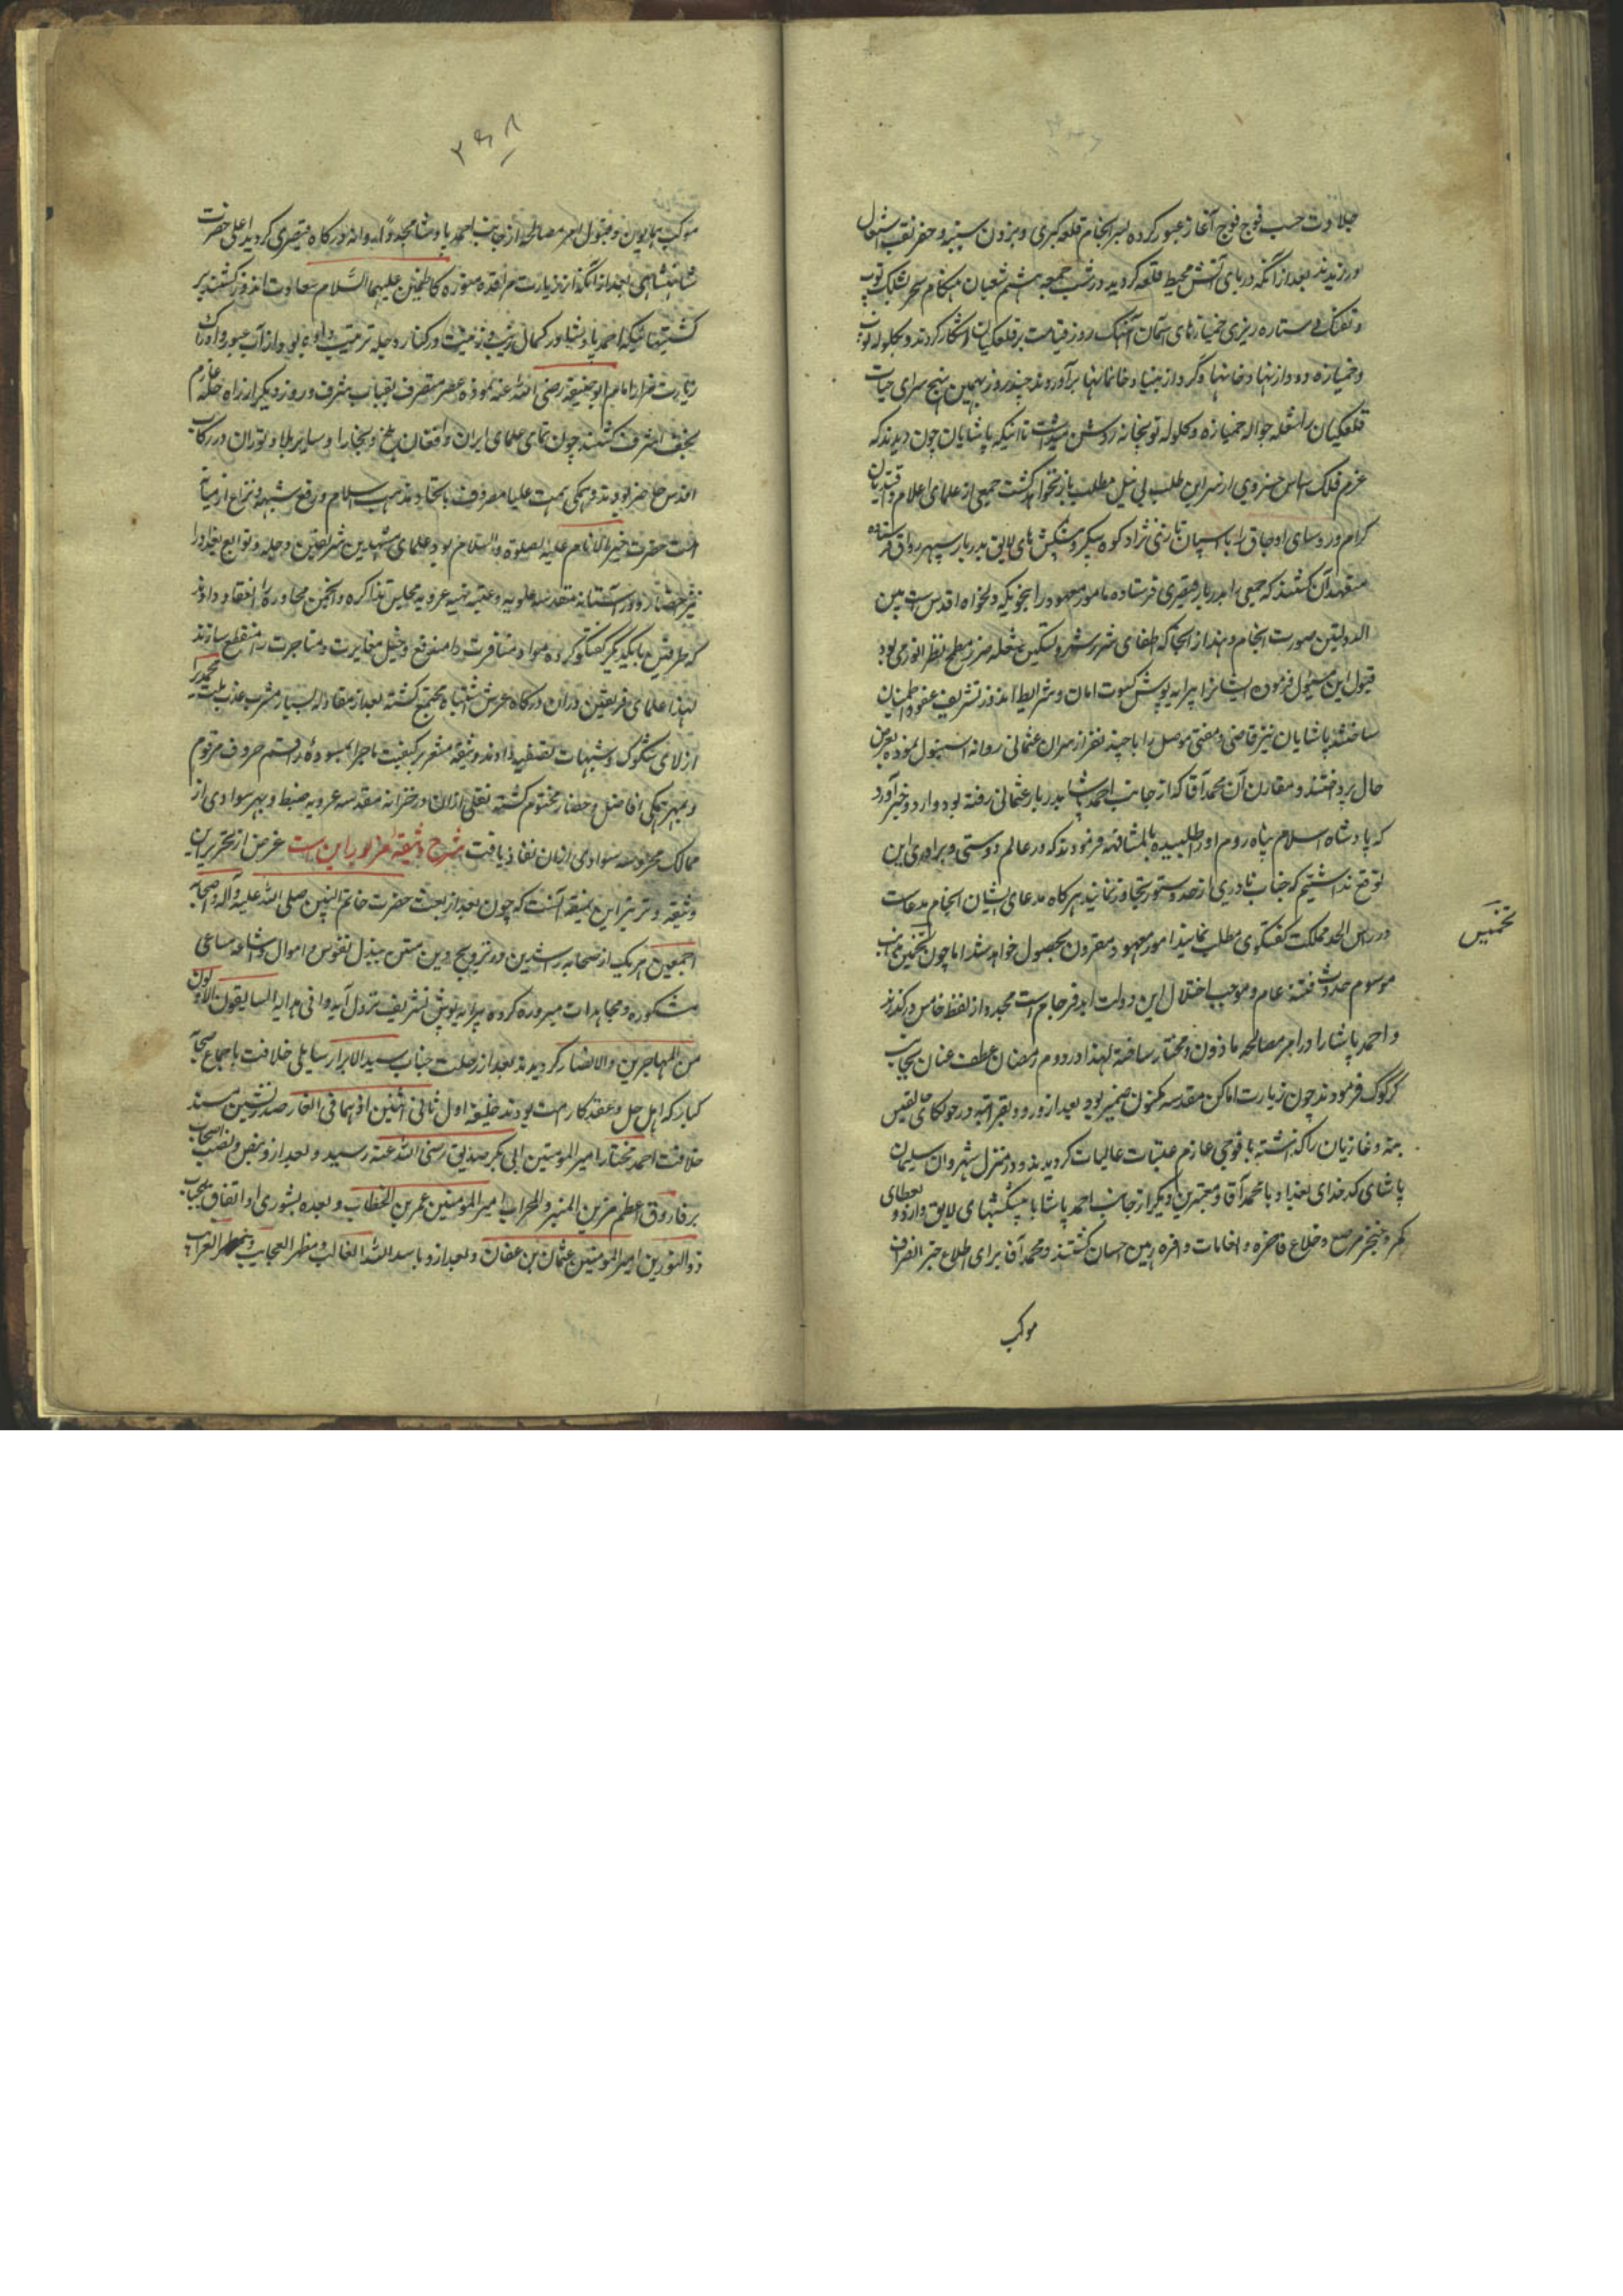 جلادت حسب فوج فوج آغاز عبور کرده بسر انجام قلعه کبری و بردن سیبه و حفر نقب اشتغال
ورزیدند بعد از آنکه دریای آتش محیط قلعه کردید در شب جمعه هشتم شعبان هنکام سحر بشلیک توپ
و تفنک و ستاره ریزی خمپاره‌های آسمان آهنک روز قیامت بر قلعکیان آشکار کردند و بکلوله توپ
و خمپاره دود از نهاد خانها و گرد از بنیاد خانمانها برآوردند چند روز بهمین نهج سرای حیات
قلعکیان بشعله جواله خمپاره و کلوله توپخانه روشن میداشت تا اینکه پاشایان چون دیدند که
عزم فلک اساس خسروی از سر این طلب بی نیل مطلب باز نخواهد کشت جمعی از علمای اعلام و
کرام و روسای اوجاق را با اسپان تازی نژاد کوه پیکر و پیشکش های لایق بدربار سپهر رواق فرستاده
متعهد آن کشتند که جمعی را بدربار قیصری فرستاده امور معهود را بنحویکه دلخواه اقدس است بین
الدولتین صورت انجام دهند از انجا که اطفای شرر شر و تسکین شعله ضرر مطمح نظر انور می بود
قبول این مسئول فرموده ایشانرا پیرایه پوش کسوت امان و شرایط اندوز تشریف عفو و اطمینان
ساختند پاشایان نیز قاضی و مفتی موصل را با چند نفر از سران عثمانی روانه استنبول نموده بعرض
حال پرداختند و مقارن آن محمد آقا که از جانب احمد پاشا بدربار عثمانی رفته بود وارد و خبر آورد
که پادشاه اسلام پناه روم او را طلبیده بالمشافهه فرمودند که در عالم دوستی و برادری این
توقع نداشتیم که جناب نادری از حد دستور تجاوز نمایند هرکاه مدعای ایشان انجام مدعاست
در راس الحد مملکت کفتکوی مطلب نمایند امور معهود مقرون بحصول خواهد شد اما چون
تخمیس
موسوم حدوث فتنه عام و موجب اختلال این دولت ابد فرجام است مجددا از لفظ خامس درکذرند
و احمد پاشا را در امر مصالحه ماذون و مختار ساخته لهذا در دوم رمضان عطف عنان بجانب
کرکوک فرمودند چون زیارت اماکن مقدسه مکنون ضمیر بود بعد از ورود بقراتپه در حوالی
بنه و غازیان را کذاشته با فوجی عازم عتبات عالیات کردیدند و در منزل شهروان سلیمان
پاشای کدخدای بغداد با محمد آقا و معتبرین دیکر از جانب احمد پاشا با پیشکشهای لایق وارد و بعطای
کمر و خنجر مرصع و خلاع فاخره و انعامات وافره رهین احسان کشتند و محمد آقا برای اطلاع خبر انصراف
موکب
۲۶۸
موکب همایون و قبول امر مصالحه از جانب احمد پاشا مجددا روانه درکاه قیصری کردید اعلی حضرت
شاهنشاهی بعد از آنکه از زیارت مرقد منوره کاظمین علیهما السلام سعادت اندوز کشتند بر
کشتیهائیکه احمد پاشا در کمال زیب و زینت در کنار دجله ترتیب داده بود از آب عبور و ادراک
زیارت مزار امام ابو حنیفه رضی الله عنه نموده عصر منصرف بقباب مشرف و روز دیکر از راه حله عازم
نجف اشرف کشتند چون تمامی علمای ایران و افغان بلخ و بخارا و سایر بلاد توران در رکاب
اقدس حاضر بودند و همکی همت علیا مصروف باتحاد مذهب اسلام و رفع شبهه و نزاع از میانه
امت حضرت خیر الانام علیه الصلوة والسلام بود علمای مشهدین شریفین و حله و توابع بغداد را
نیز احضار و در آستانه مقدسه علویه و عتبه بهیه غرویه مجالس مذاکره و انجمن محاوره را انعقاد دادند
که طرفین با یکدیکر کفتکو کرده مواد منافرت را مندفع و خیل مغایرت و مشاجرت را منقطع سازند
لهذا علمای فریقین در ان درکاه عرش اشتباه مجتمع کشته بعد از مقاوله بسیار مشرب عذب ملت محمدیرا
از لای شکوک و شبهات تصفیه دادند و وثیقه مشعر بر کیفیت ماجرا بمسوده رقم حروف مرقوم
و بمهر همکی افاضل و حضار مختوم کشته نقلی از ان در خزانه مقدسه غرویه ضبط و بهر سوادی از
ممالک محروسه سوادی از ان نفاذ یافت شرح وثیقه مزبور این ست غرض از تحریر این
وثیقه و ترتیر این نمیقه آنست که چون بعد از بعثت حضرت خاتم النبیین صلی الله علیه و آله و اصحابه
اجمعین هر یک از صحابه راشدین در ترویج دین مبین ببذل نفوس و اموال و اشاعه مساعی
مشکوره و مجاهدات مبروره کرده پیرایه پوش تشریف نزول آیه وافی هدایه السابقون الاولون
من المهاجرین والانصار کردیدند بعد از رحلت جناب سید الابرار بنای خلافت باجماع صحابه
کبار که اهل حل و عقد کار امت بودند خلیفه اول ثانی اثنین اذ هما فی الغار صدر نشین مسند
خلافت احمد مختار امیر المومنین ابی بکر صدیق رضی الله عنه رسید و بعد از و بنص و نصب اصحاب
بر فاروق اعظم مزین المنبر و المحراب امیر المومنین عمر بن الخطاب و بعده بشوری و اتفاق بجناب
ذوالنورین امیر المومنین عثمان بن عفان و بعد از و باسد الله الغالب و مظهر العجایب و مظهر الغرایب